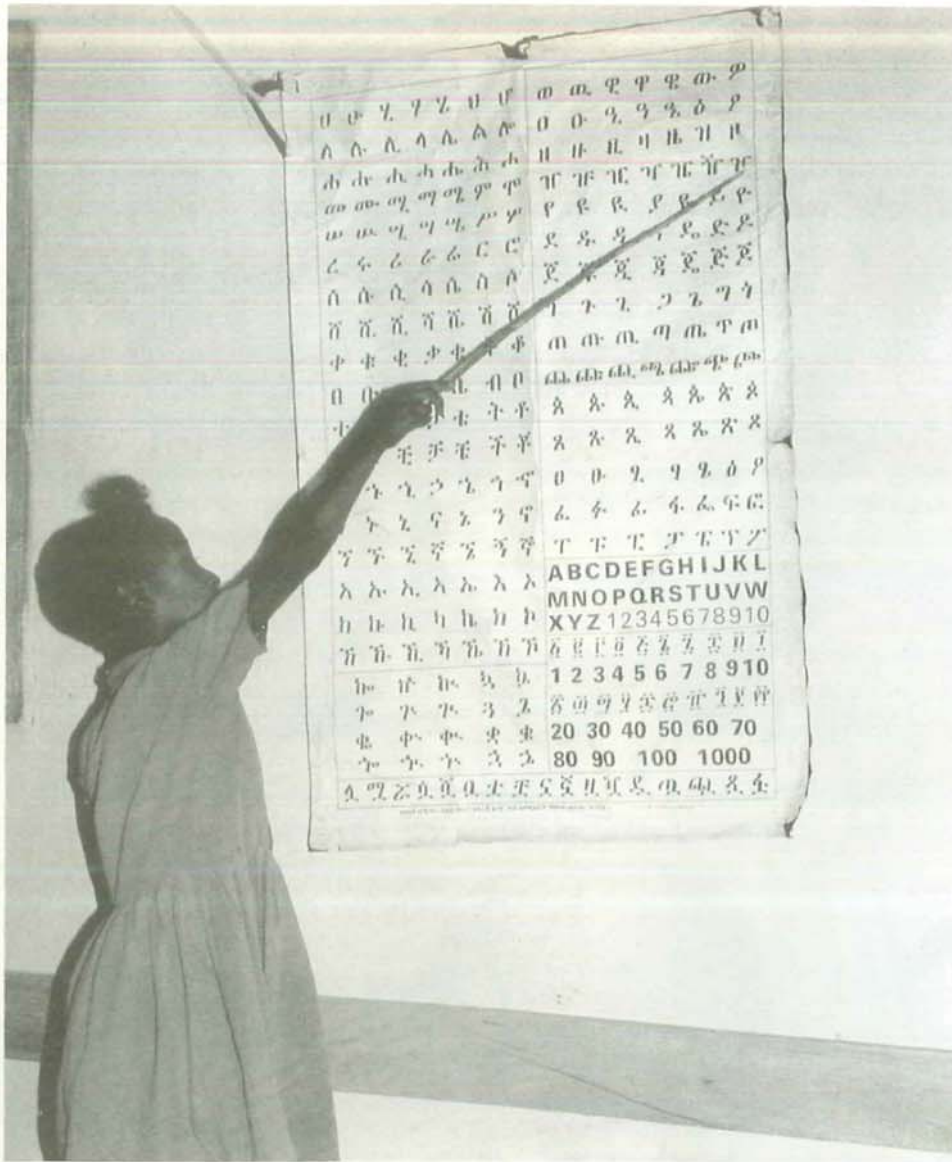 ሀ ሁ ሂ ሃ ሄ ህ ሆ
ለ ሉ ሊ ላ ሌ ል ሎ
ሐ ሑ ሒ ሓ ሔ ሕ ሖ
መ ሙ ሚ ማ ሜ ም ሞ
ሠ ሡ ሢ ሣ ሤ ሥ ሦ
ረ ሩ ሪ ራ ሬ ር ሮ
ሰ ሱ ሲ ሳ ሴ ስ ሶ
ሸ ሹ ሺ ሻ ሼ ሽ ሾ
ቀ ቁ ቂ ቃ ቄ ቆ
በ ቤ ብ ቦ
ተ ቴ ት ቶ
ቺ ቻ ቼ ች ቾ
ኁ ኂ ኃ ኄ ኅ ኆ
ኑ ኒ ና ኔ ን ኖ
ኘ ኙ ኚ ኛ ኜ ኝ ኞ
አ ኡ ኢ ኣ ኤ እ ኦ
ከ ኩ ኪ ካ ኬ ክ ኮ
ኸ ኹ ኺ ኻ ኼ ኽ ኾ
ወ ዉ ዊ ዋ ዌ ው ዎ
ዐ ዑ ዒ ዓ ዔ ዕ ዖ
ዘ ዙ ዚ ዛ ዜ ዝ ዞ
ዠ ዡ ዢ ዣ ዤ ዥ ዦ
የ ዩ ዪ ያ ዬ ይ ዮ
ደ ዱ ዲ ዴ ድ ዶ
ጀ ጁ ጂ ጃ ጄ ጅ ጆ
ገ ጉ ጊ ጋ ጌ ግ ጎ
ጠ ጡ ጢ ጣ ጤ ጥ ጦ
ጨ ጩ ጪ ጫ ጬ ጭ ጮ
ጰ ጱ ጲ ጳ ጴ ጵ ጶ
ጸ ጹ ጺ ጻ ጼ ጽ ጾ
ፀ ፁ ፂ ፃ ፄ ፅ ፆ
ፈ ፉ ፊ ፋ ፌ ፍ ፎ
ፐ ፑ ፒ ፓ ፔ ፕ ፖ
ABCDEFGHIJKL
MNOPQRSTUVW
XYZ 12345678910
፩ ፪ ፫ ፬ ፭ ፮ ፯ ፰ ፱ ፲
1 2 3 4 5 6 7 8 9 10
20 30 40 50 60 70
80 90 100 1000
ሏ ሟ ሯ ሷ ሿ ቧ ቷ ቿ ኗ ኟ ዟ ዧ ዷ ጧ ጯ ጿ ፏ